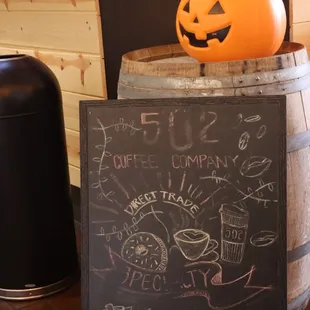 502
COFFEE COMPANY
DIRECT TRADE
502
SPECIALTY